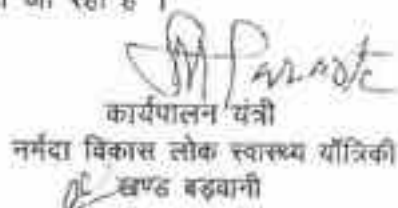 जा रहा है ।
कार्यपालन यंत्री
नर्मदा विकास लोक स्वास्थ्य यॉत्रिकी
खण्ड बड़वानी